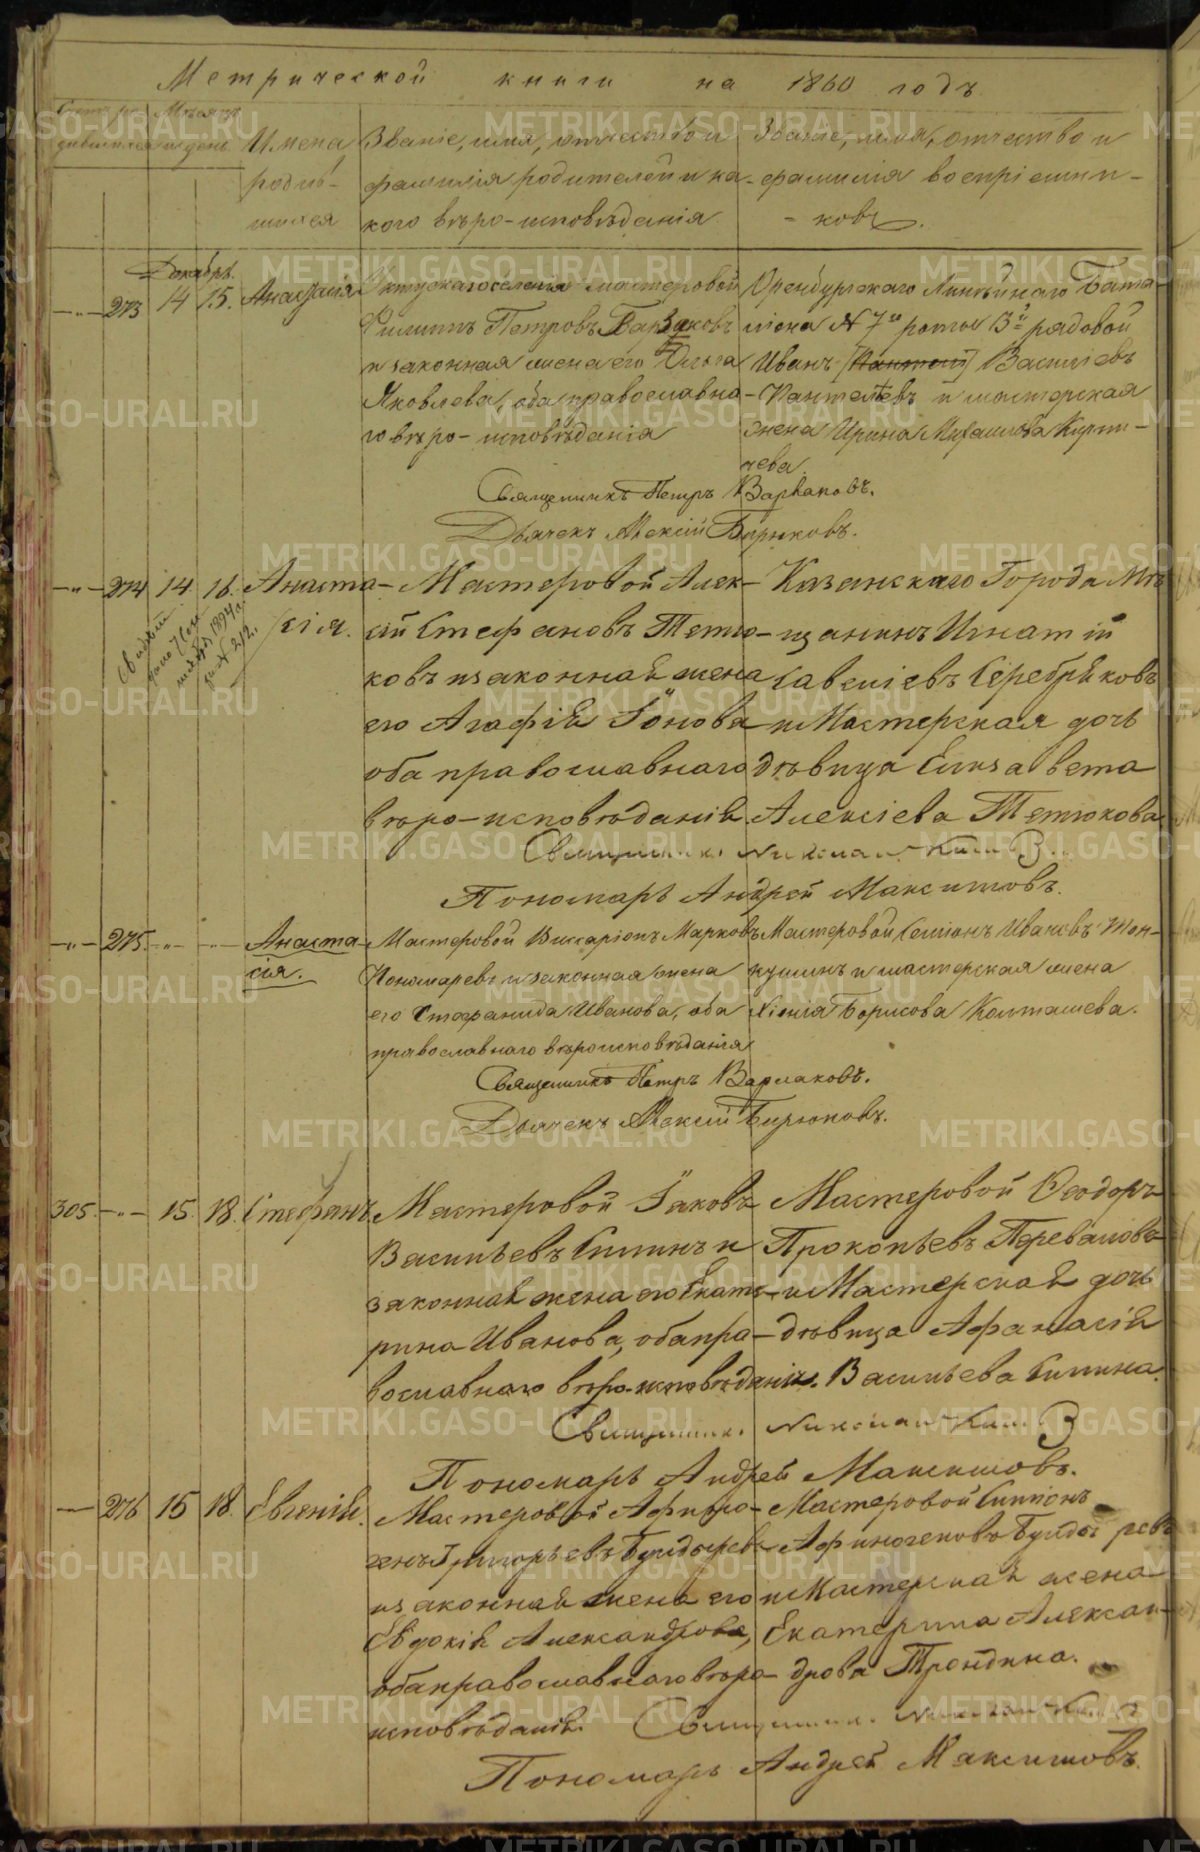 Метрической книги на 1860 годъ
Мѣсяцъ
и день
Имена
родив-
шихся
Званіе, имя, отчество и
фамилія родителей и ка-
кого вѣро-исповѣданія
Званіе, имя, отчество и
фамилія воспріемни-
-ковъ.
Декабрь.
-"- 273 14 15. Анастасія
мастеровой
Филиппъ Петровъ
и законная жена его Ольга
Яковлева, оба православна-
го вѣро-исповѣданія
Оренбургскаго Линѣйнаго Бата-
ліона № 7го роты 3й рядовой
Иванъ Василіевъ
Пантелѣевъ и мастерская
жена Ирина Михаилова Кирпи-
чева.
Священникъ Петръ Варлаковъ.
Дьячекъ Алексій Бирюковъ.
-"- 274 14 16. Анаста-
сія.
№ 212.
Мастеровой Алек-
сій Стефановъ Тетю-
ковъ и законная жена
его Агафія Іонова
оба православнаго
вѣро-исповѣданія.
Казанскаго Города Мѣ-
щанинъ Игнатій
Савеліевъ Серебряковъ
и Мастерская дочь
дѣвица Елизавета
Алексіева Тетюкова
Священникъ Николай
Пономарь Андрей Максимовъ.
-"- 275 -"- Анаста-
сія.
Мастеровой Виссаріонъ Марковъ
Пономаревъ и законная жена
его Стефанида Иванова, оба
православнаго вѣроисповѣданія
Мастеровой Семіонъ Ивановъ Топ-
кушинъ и мастерская жена
Хіонія Борисова Колташева.
Священникъ Петръ Варлаковъ.
Дьячекъ Алексій Бирюковъ.
305. -"- 15. 18. Стефанъ
Мастеровой Іаковъ
Васильевъ Силинъ и
законная жена его Екате-
рина Иванова, оба пра-
вославнаго вѣро-исповѣданія.
Мастеровой Ѳеодоръ
Прокопьевъ Переваловъ
и Мастерская дочь
дѣвица Афанасія
Васильева Силина.
Священникъ Николай
Пономарь Андрей Максимовъ.
276 15 18. Евгенія.
Мастеровой Афино-
генъ Григорьевъ Булдыревъ
и законная жена его
Евдокія Александрова,
оба православнаго вѣро-
исповѣданія.
Мастеровой Симіонъ
Афиногеновъ Булдыревъ
и Мастерская жена
Екатерина Алексан-
дрова Трондина.
Священникъ Николай
Пономарь Андрей Максимовъ.
METRIKI.GASO-URAL.RU